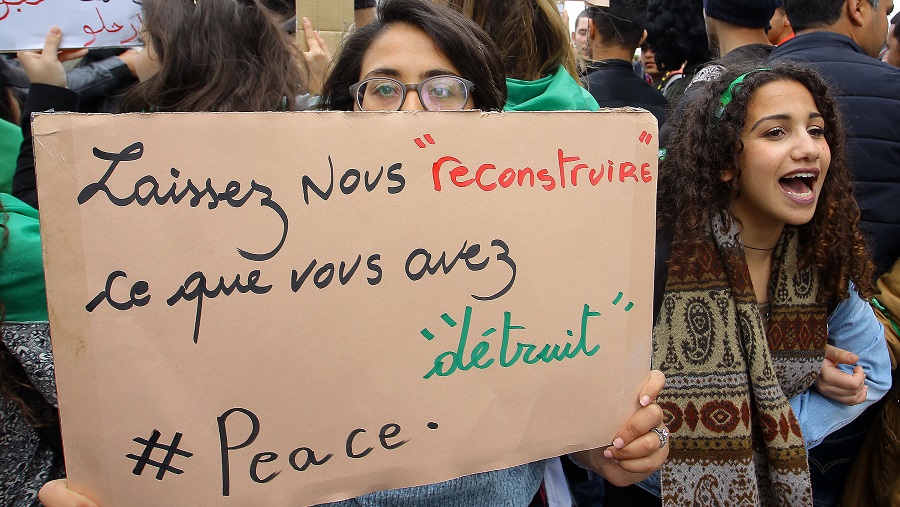 ارحلو
Laissez Nous "reconstruire"
ce que vous avez
"détruit"
#Peace.